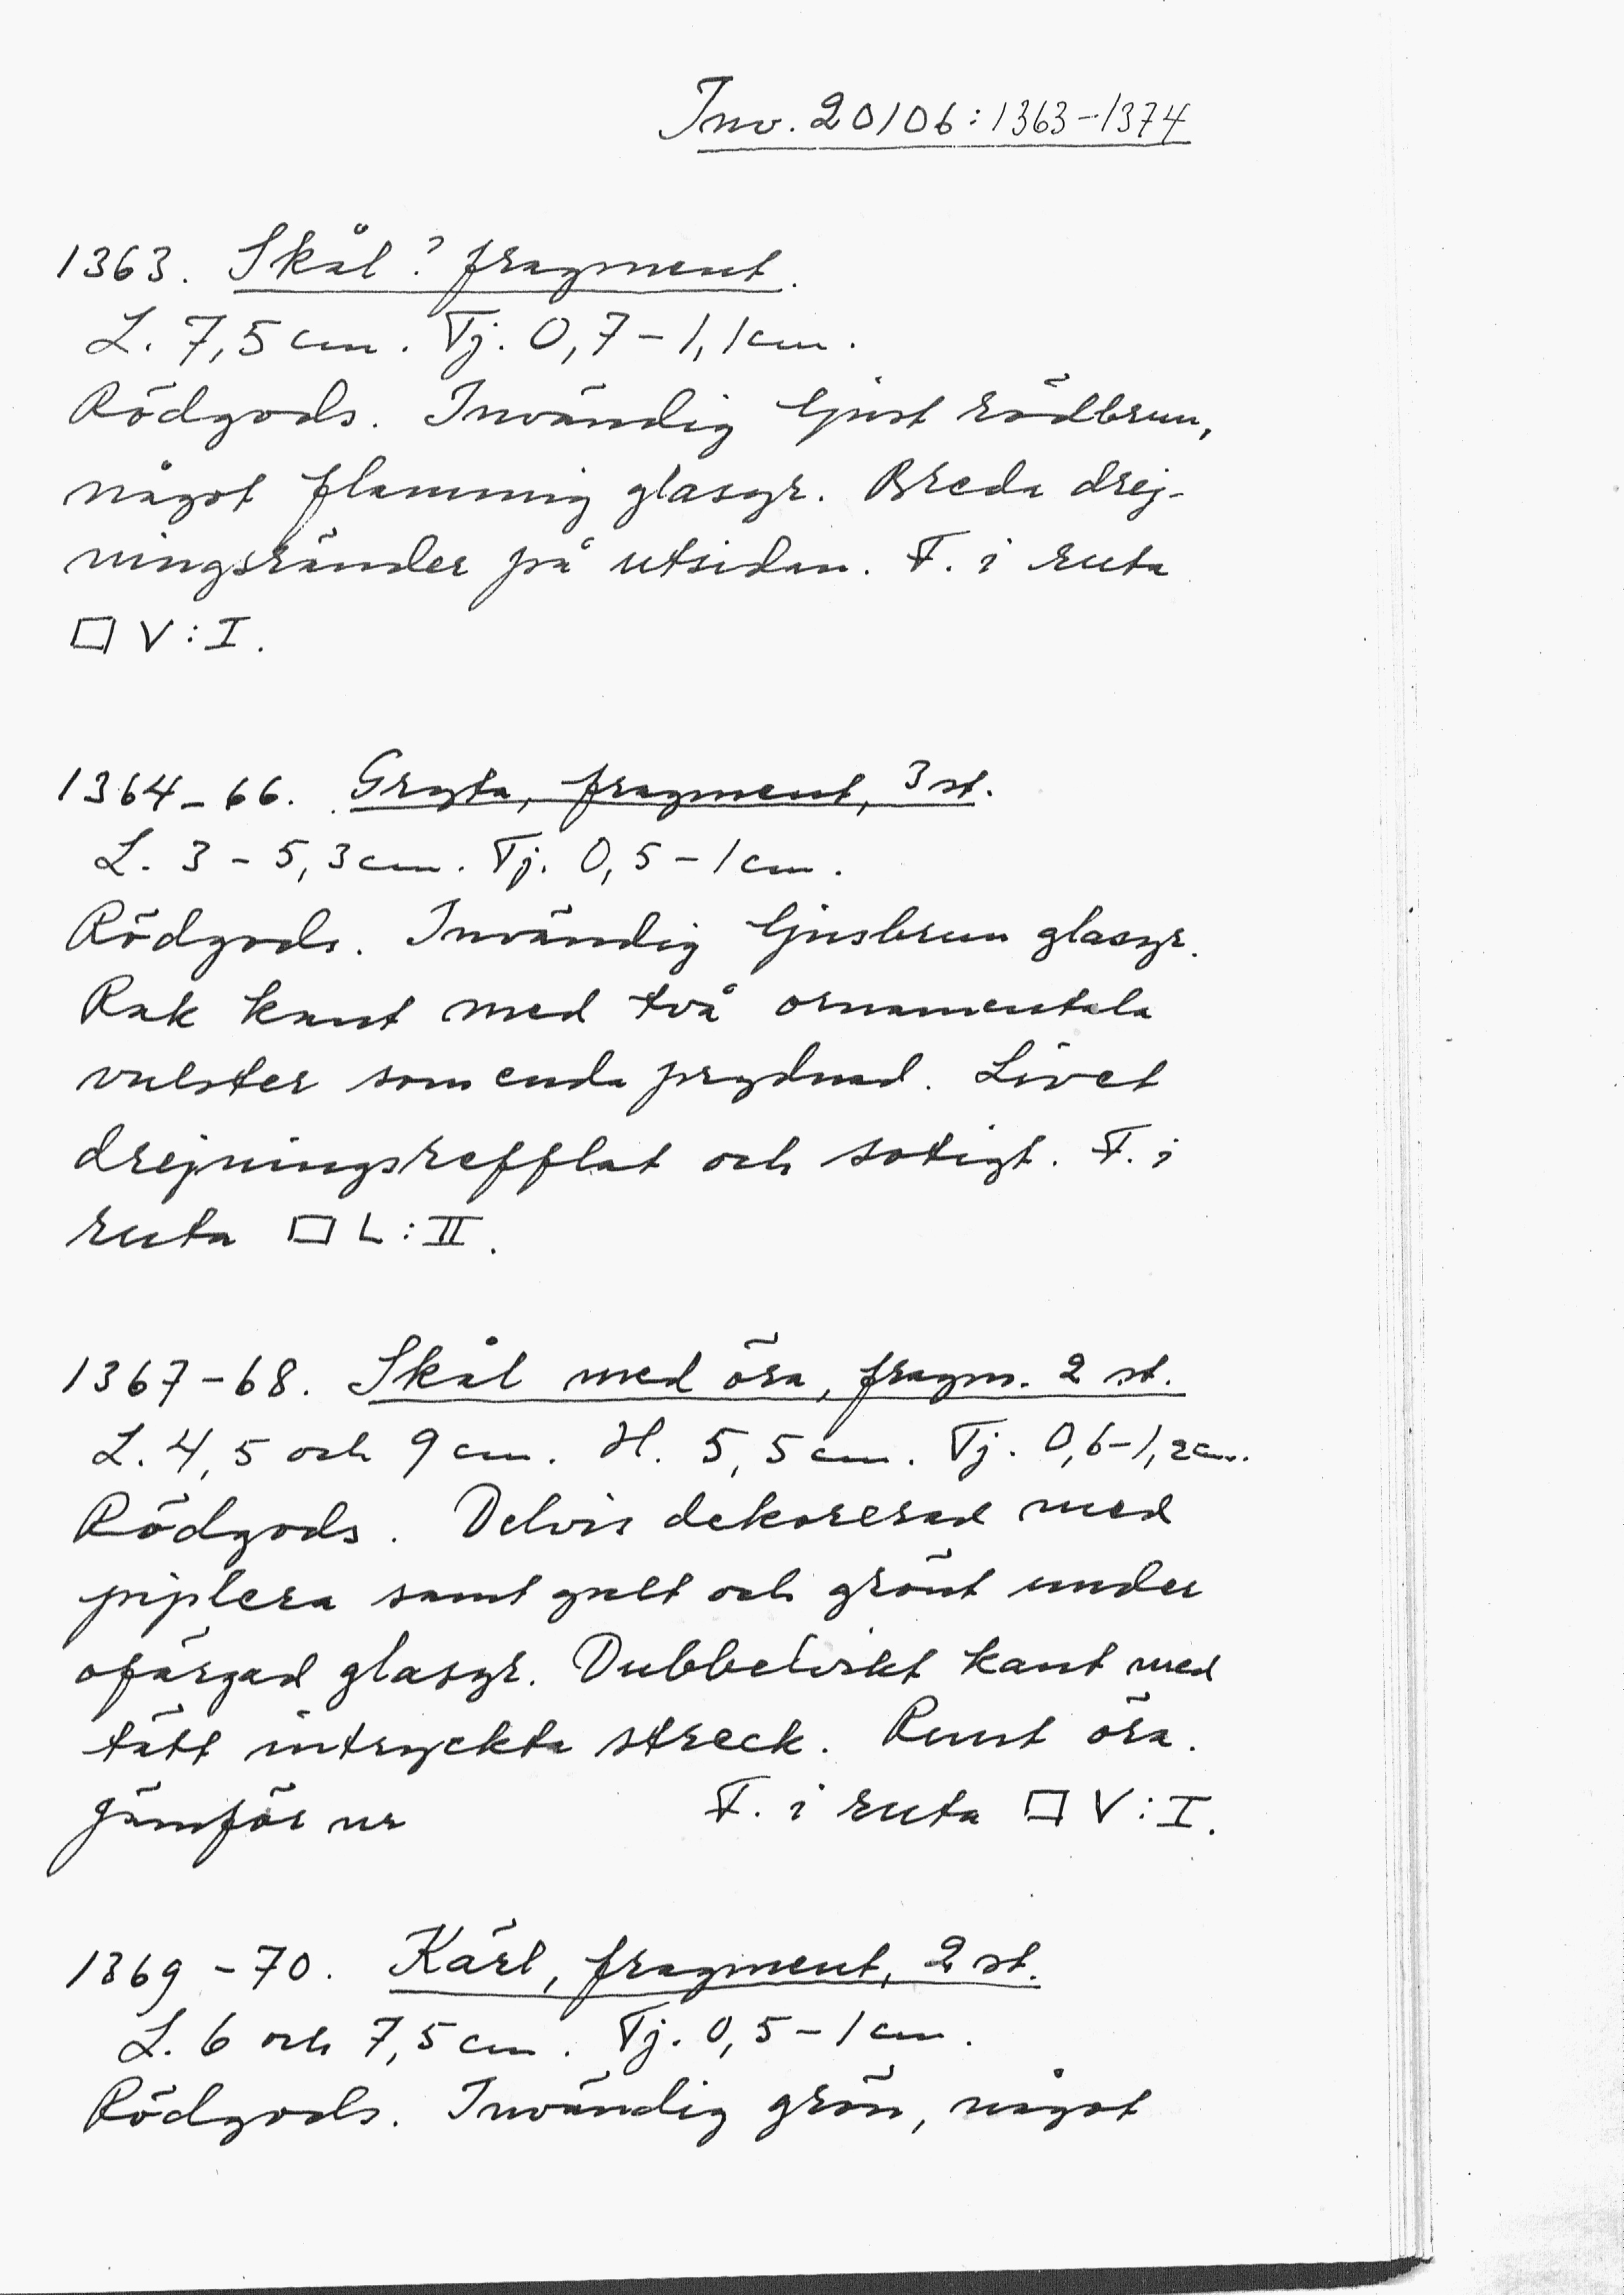 Inv. 20106:1363-1374
1363. Skål? fragment.
L. 7,5 cm. Tj. 0,7-1,1 cm.
Rödgods. Invändig ljust rödbrun,
något flammig glasyr. Breda drej-
ningsränder på utsidan. F. i ruta
□ V:I.
1364-66. Gryta, fragment, 3 st.
L. 3-5,3 cm. Tj. 0,5-1 cm.
Rödgods. Invändig ljusbrun glasyr.
Rak kant med två ornamentala
vulster som enda prydnad. Livet
drejningsrefflat och sotigt. F. i
ruta □ L:II.
1367-68. Skål med öra, fragm. 2 st.
L. 4,5 och 9 cm. H. 5,5 cm. Tj. 0,6-1,2 cm.
Rödgods. Delvis dekorerad med
piplera samt gult och grönt under
ofärgad glasyr. Dubbelvikt kant med
tätt intryckta streck. Runt öra.
Jämför nr F. i ruta □ V:I.
1369-70. Kärl, fragment, 2 st.
L. 6 och 7,5 cm. Tj. 0,5-1 cm.
Rödgods. Invändig grön, något